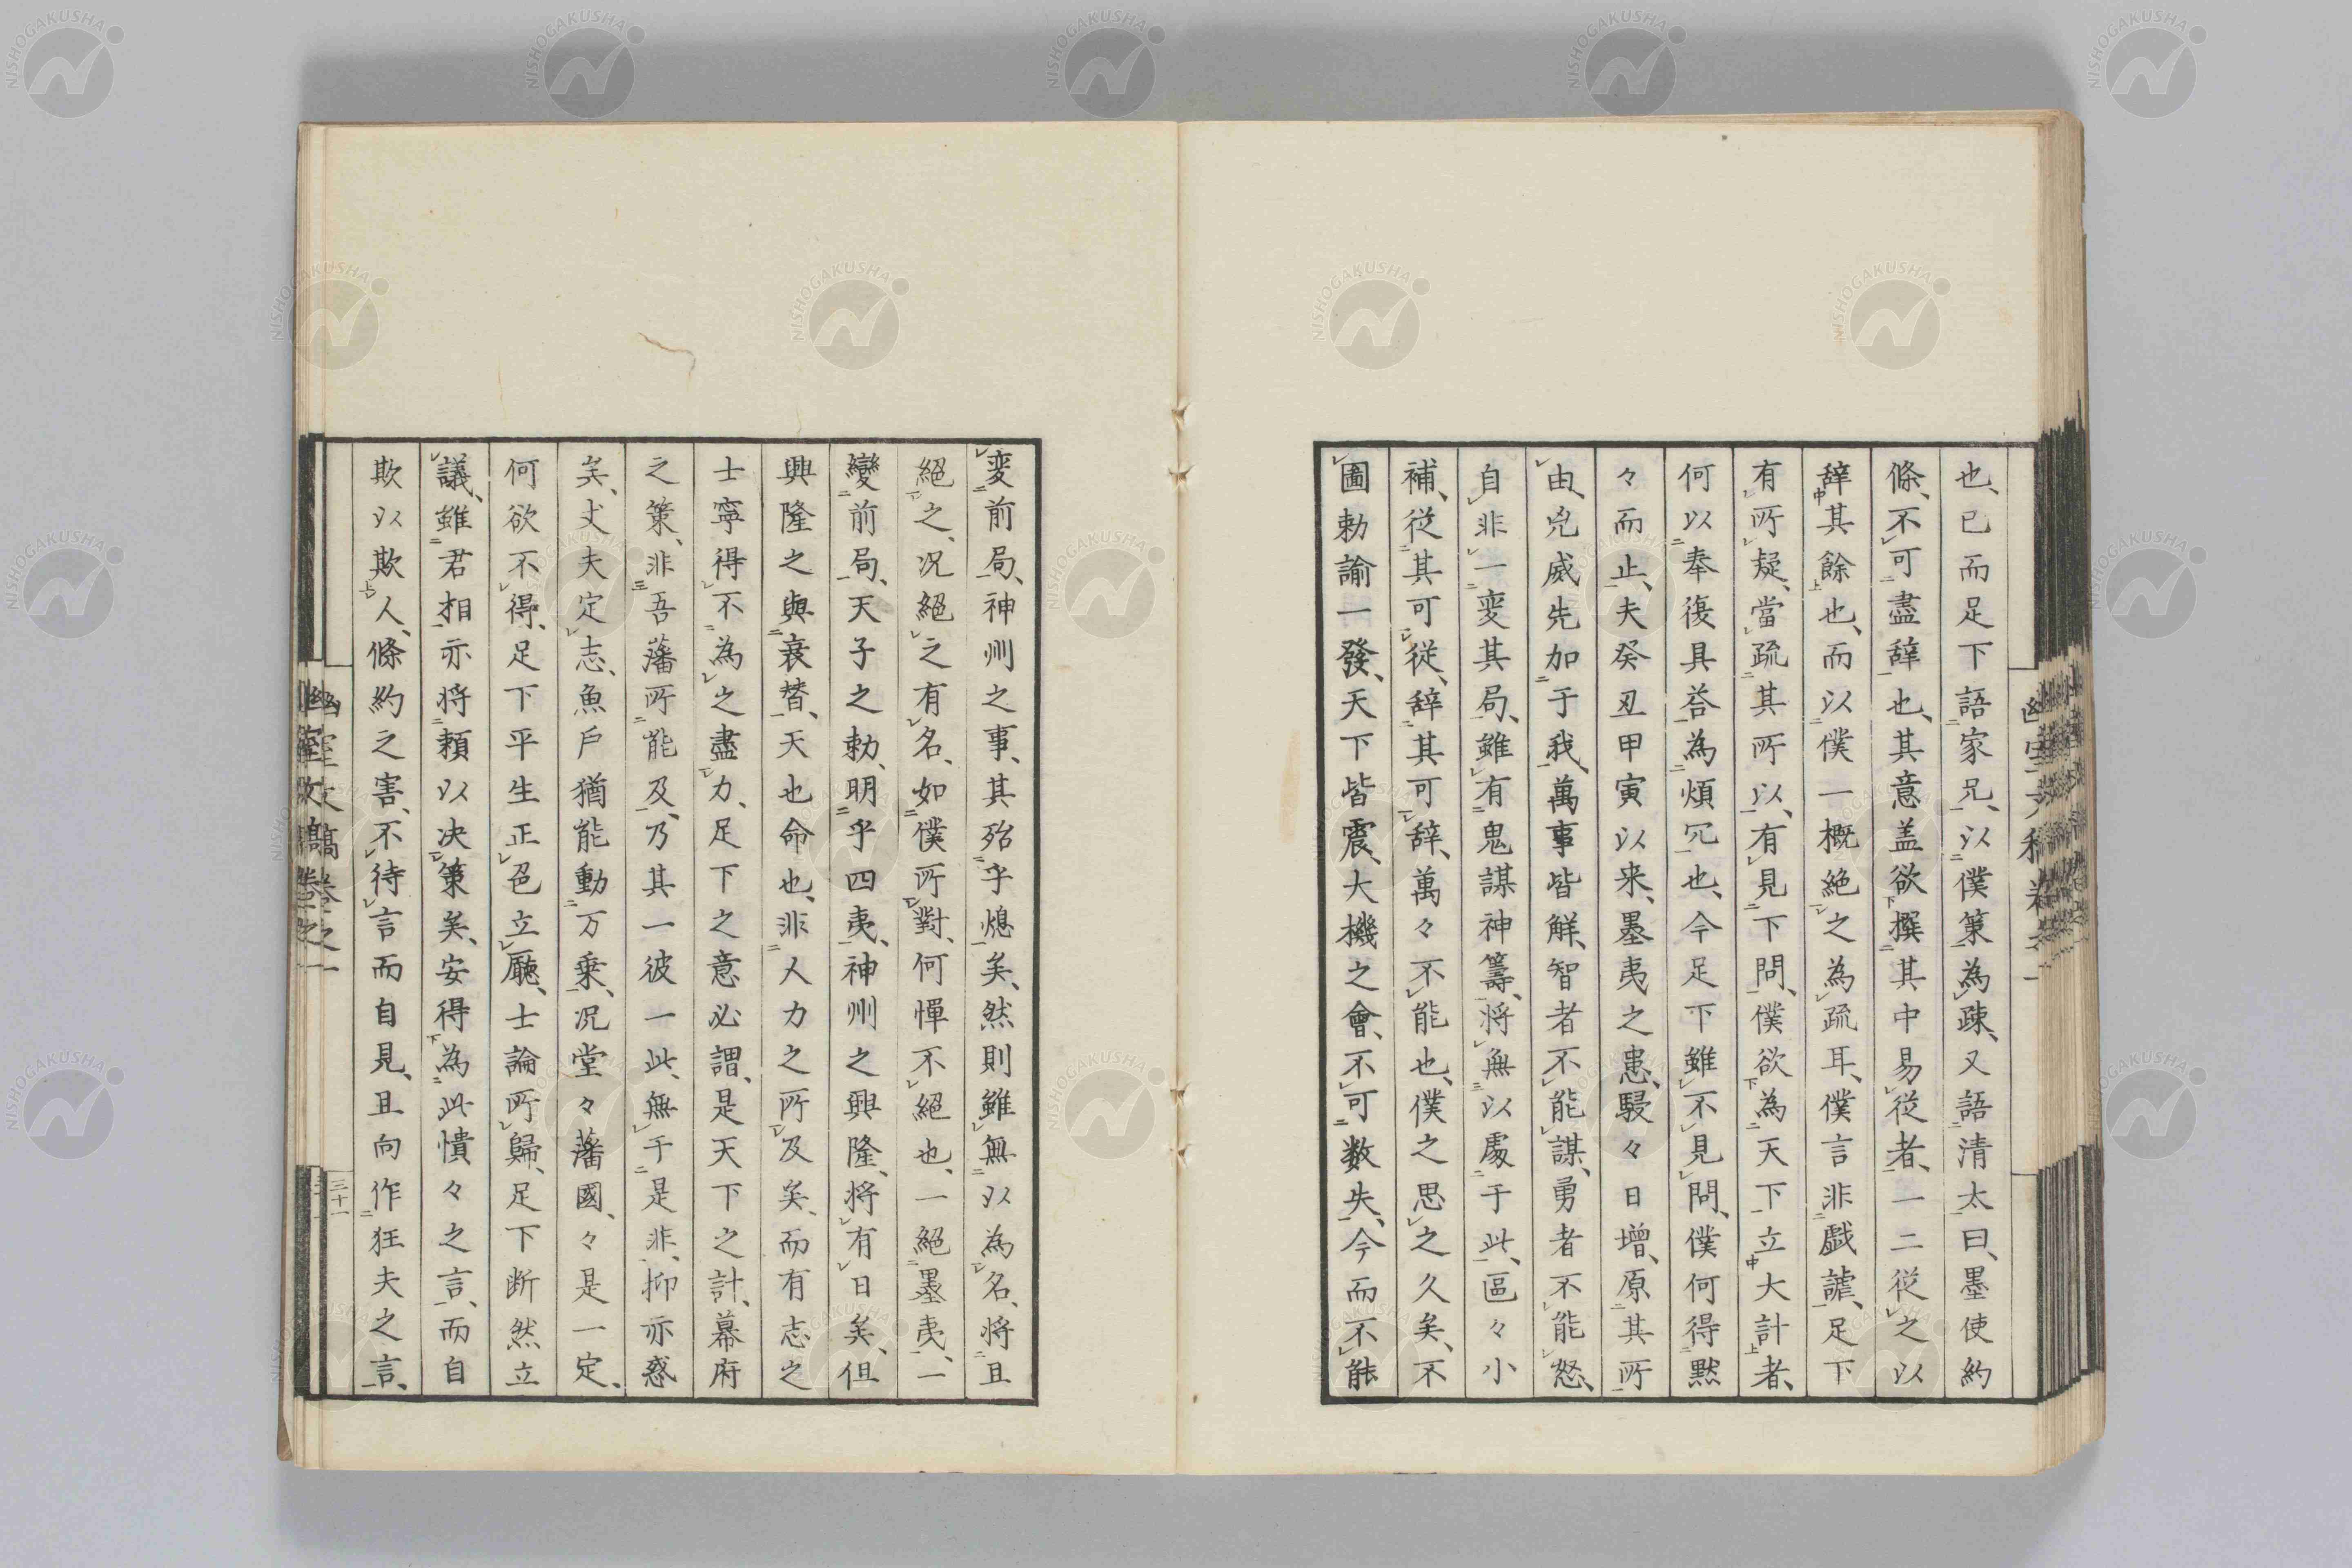 也、已而足下語家兄、以僕策為疎、又語清太曰、墨使約
條、不可盡辞也、其意盖欲撰其中易從者、一二従之以
辞其餘也、而以僕一概絶之為疏耳、僕言非戯謔、足下
有所疑、當疏其所以、有見下問、僕欲為天下立大計者、
何以奉復具荅為煩冗也、今足下雖不見問、僕何得黙
々而止、夫癸丑甲寅以来、墨夷之患、駸々日增、原其所
由、皃威先加于我、萬事皆解、智者不能謀、勇者不能怒、
自非一変其局、雖有鬼謀神籌、將無以處于此、區々小
補、従其可従、辞其可辞、萬々不能也、僕之思之久矣、不
圖勅諭一發、天下皆震、大機之會、不可数失、今而不能
変前局、神州之事、其殆乎熄矣、然則雖無以為名、將且
絕之、况絕之有名、如僕所對、何憚不絕也、一絕墨夷、一
變前局、天子之勅、明乎四夷、神州之興隆、將有日矣、但
興隆之與衰替、天也命也、非人力之所及矣、而有志之
士寧得不為之盡力、足下之意必謂、是天下之計、幕府
之策、非吾藩所能及、乃其一彼一此、無于是非、抑亦惑
矣、丈夫定志、魚戶猶能動万乗、况堂々藩國、々是一定、
何欲不得、足下平生正色立廳、士論所歸、足下断然立
議、雖君相亦将頼以决策矣、安得為此憒々之言、而自
欺以欺人、條約之害、不待言而自見、且向作狂夫之言、
幽室文稿卷之一
三十一